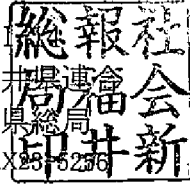 社会新
報福井
総局印
井県連合
県総局
X23-5256